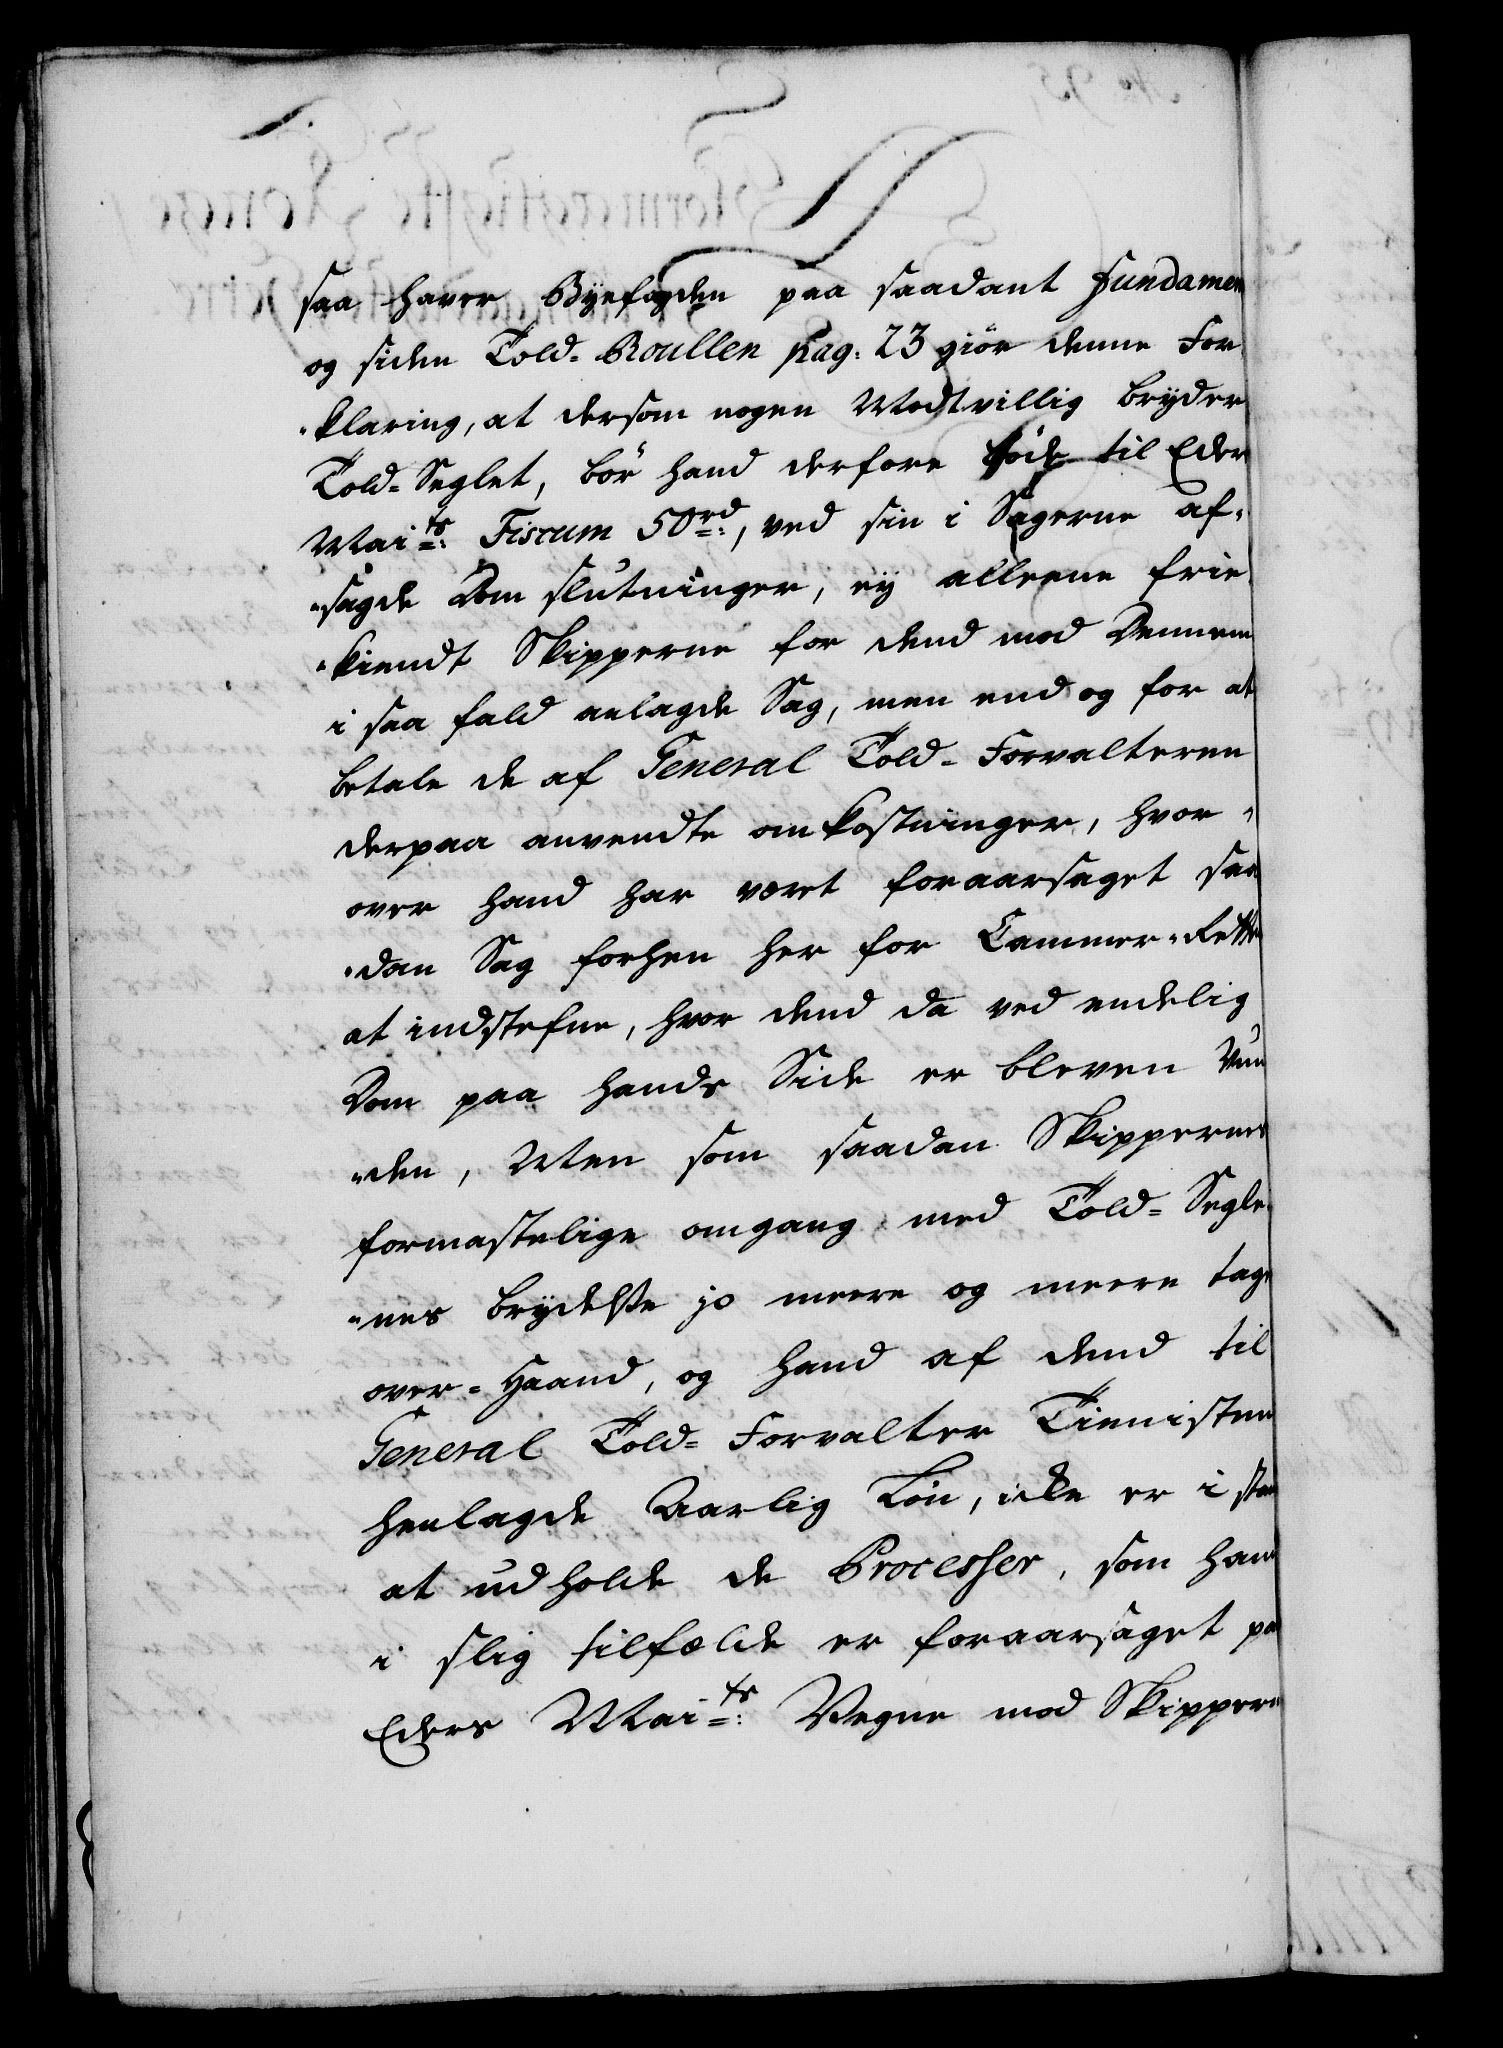 saa haver Byefogden paa saadant Fundamen
og siden Told-Roullen pag: 23 giör denne For
-klaring, at dersom nogen Modtvillig bryder
Told-Seglet, bör hand derfore böde til Eders
Maits: Fiscum 50rd:, ved sin i Sagerne af-
-sagde Dom slutninger, ey alleene frie
-kiendt Skipperne for dend mod Dennem
i saa fald anlagde Sag, men end og for at
betale de af General Told-Forvalteren
derpaa anvendte omkostninger, hvor-
over hand har været foraarsaget saa
-dan Sag forhen her for Cammer-Rette
at indstefne, hvor dend da ved endelig
Dom paa hands Side er bleven Vun
-den, Men som saadan Skippernes
formastelige omgang med Told-Segle
-nes brydelse jo meere og meere tag
over-Haand, og hand af dend til
General Told-Forvalter Tienisten
henlagde Aarlig Løn, icke er i stan
at udholde de Processer, som hand
i slig tilfælde er foraarsaget paa
Eders Maits: Vegne mod Skippern